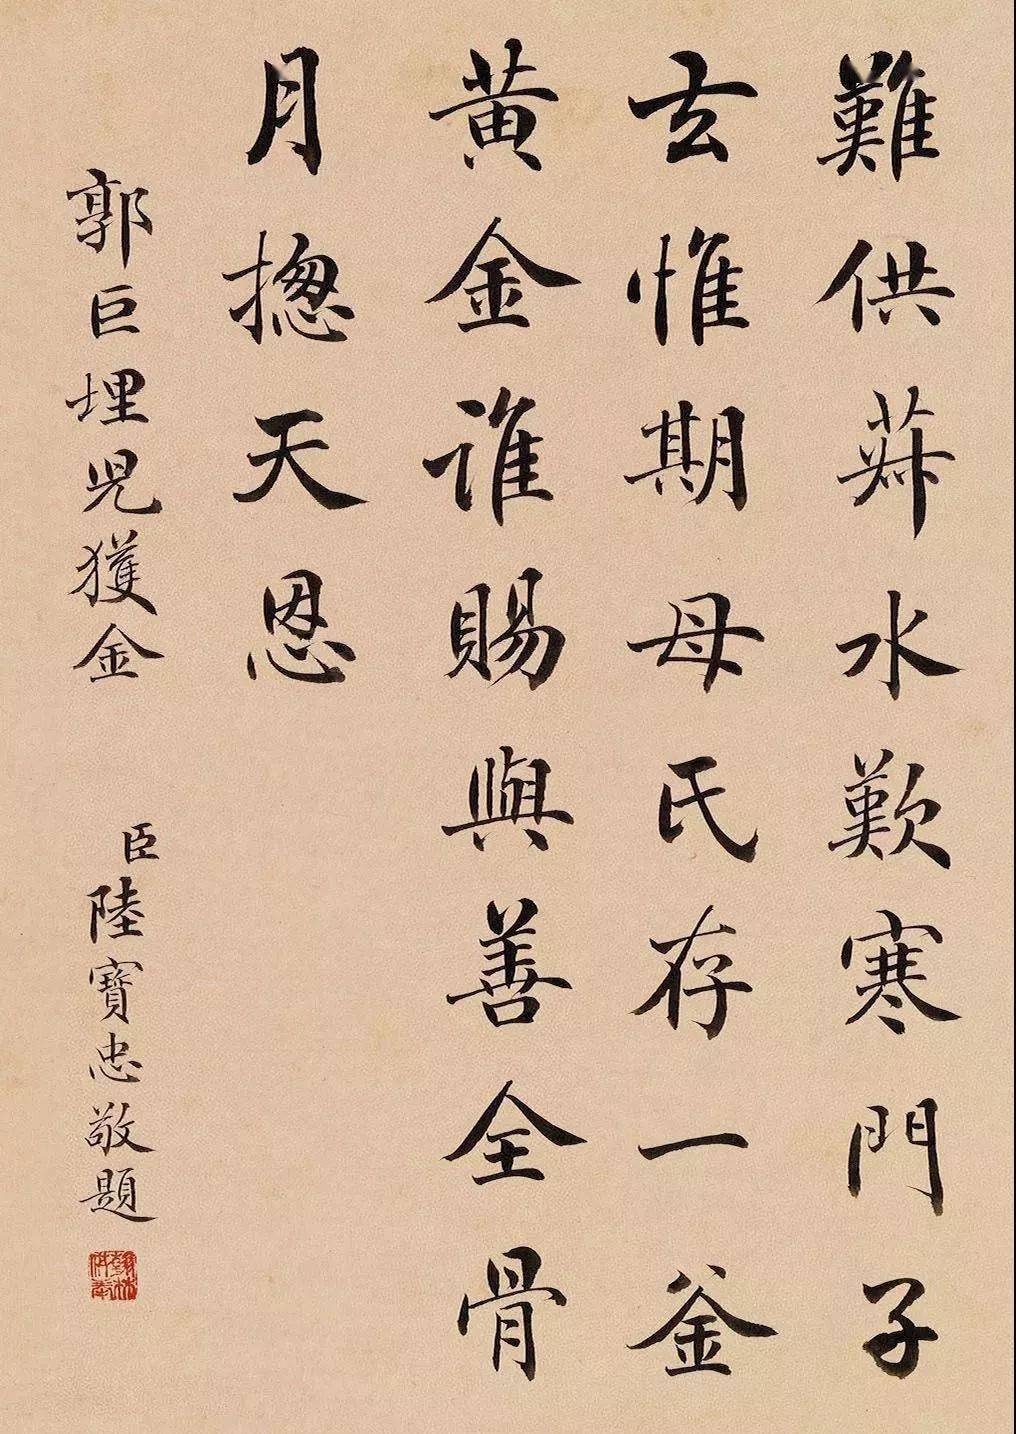 難供菽水歎寒門子
去惟期母氏存一釜
黄金谁賜與善全骨
月揔天恩
郭巨埋兒獲金
臣陸寶忠敬題
翰林供奉